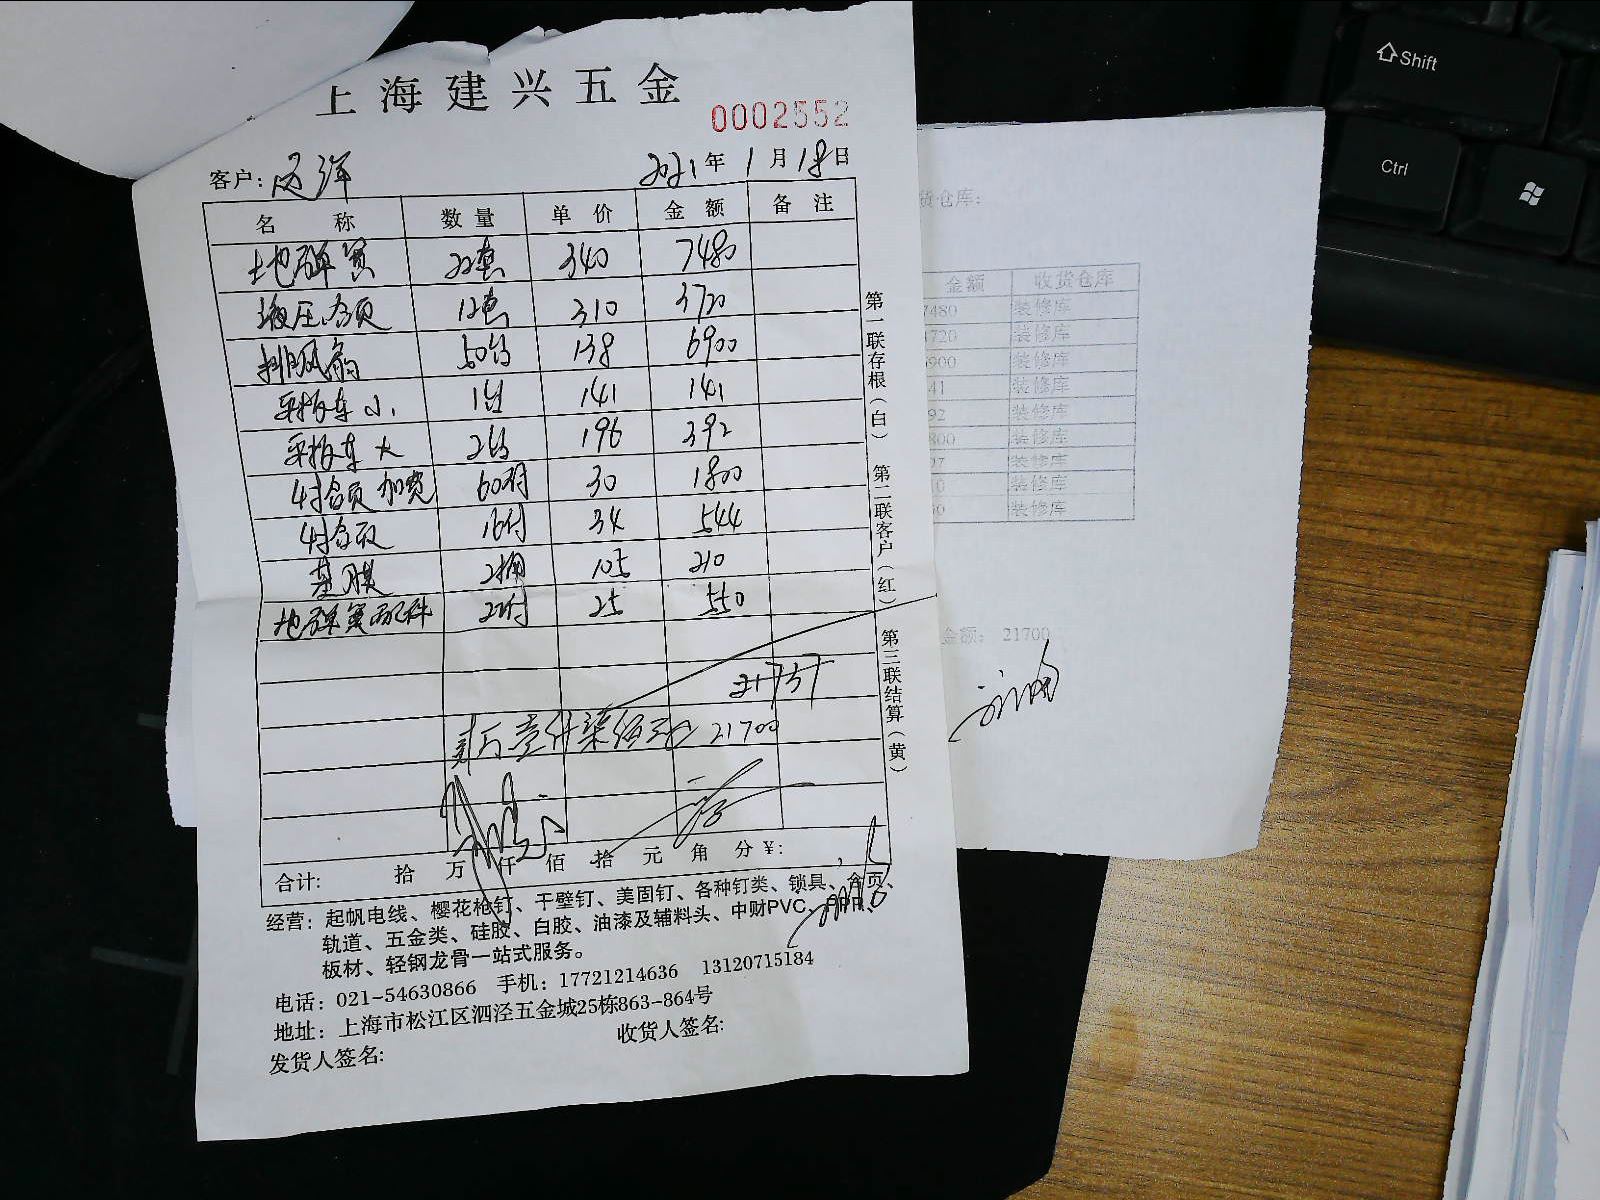 上海建兴五金
0002552
客户: 2021年1月18日
名 称 数量 单价 金额 备注
地弹簧 22套 340 7480
液压合页 12套 310 3720
排风扇 50台 138 6900
平板车 小 1台 141 141
平板车 大 2台 196 392
4寸合页 加宽 60付 30 1800
4寸合页 16付 34 544
基膜 2桶 105 210
地弹簧配件 22付 25 550
21737
贰万壹仟柒佰元 21700
合计: 拾 万 仟 佰 拾 元 角 分 ¥:
经营: 起帆电线、樱花枪钉、干壁钉、美固钉、各种钉类、锁具、合页、
轨道、五金类、硅胶、白胶、油漆及辅料头、中财PVC、PPR、
板材、轻钢龙骨一站式服务。
电话: 021-54630866 手机: 17721214636 13120715184
地址: 上海市松江区泗泾五金城25栋863-864号
发货人签名: 收货人签名:
第一联存根(白) 第二联客户(红) 第三联结算(黄)
货仓库:
金额 收货仓库
7480 装修库
3720 装修库
6900 装修库
41 装修库
92 装修库
800 装修库
装修库
装修库
装修库
金额: 21700
Shift
Ctrl